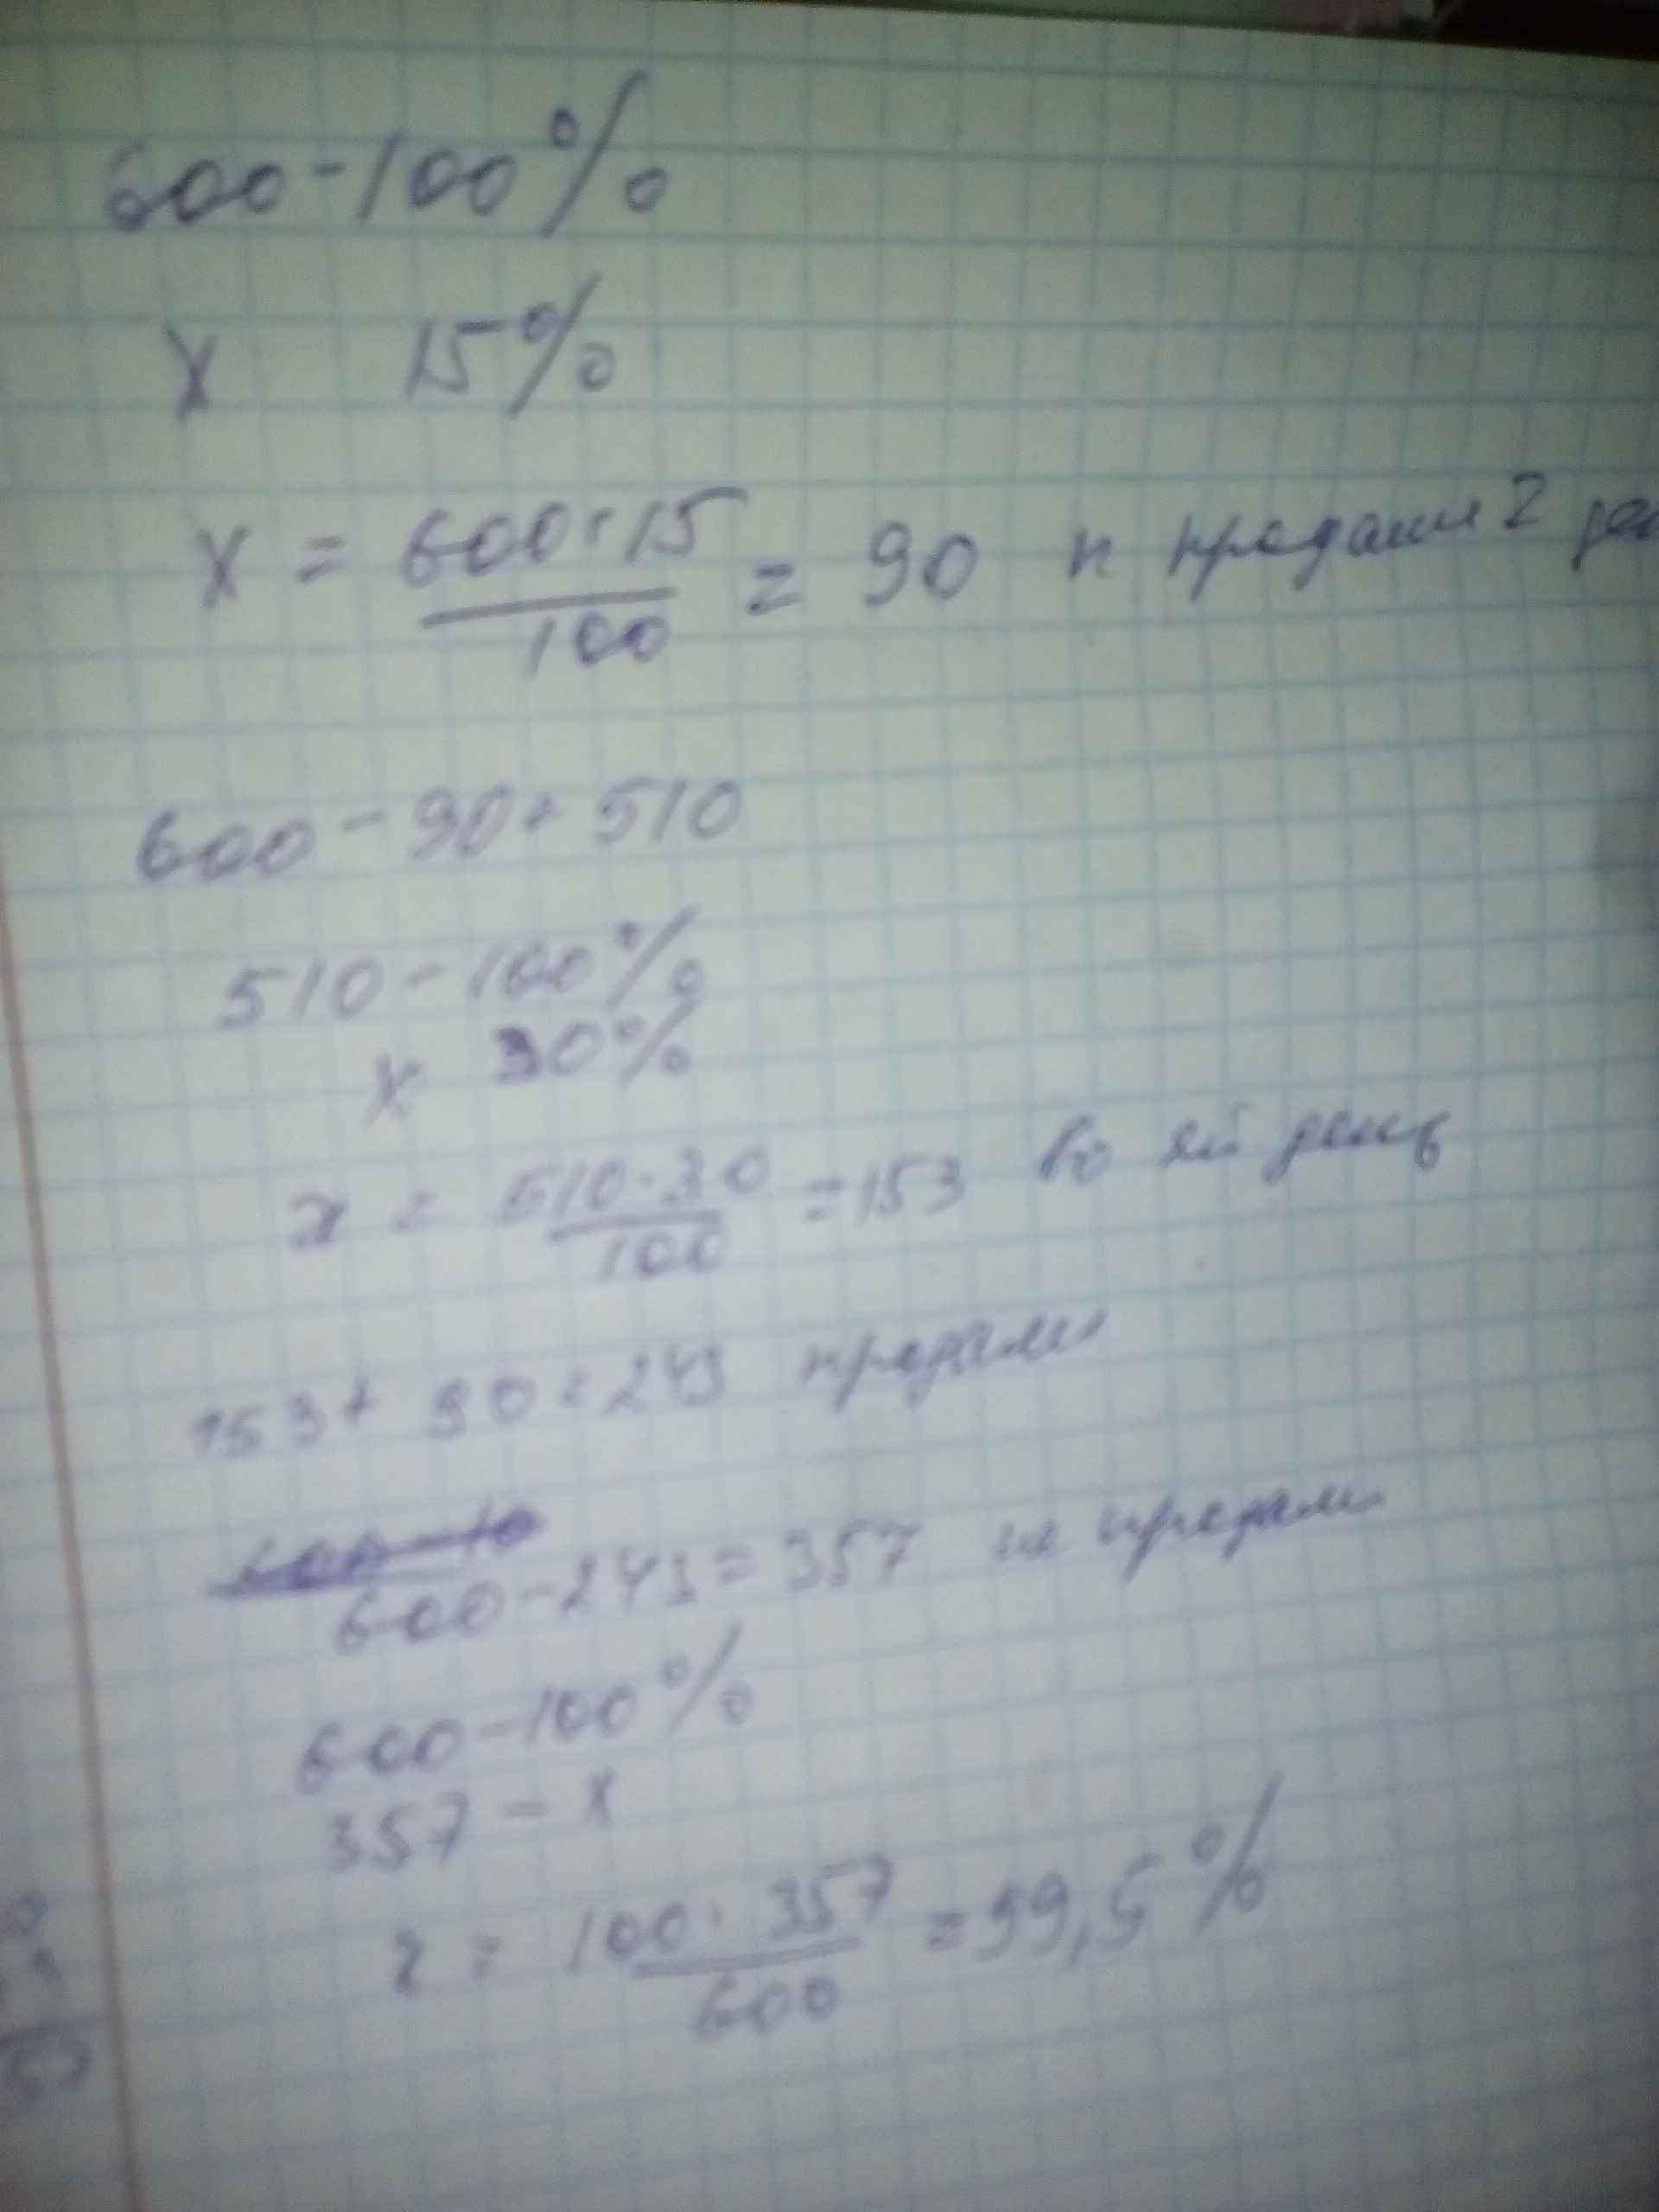 600-100%
x 15%
x = 600·15 = 90 п продали 2 ден
100
600 - 90 = 510
510 - 100%
x 30%
x = 510·30 = 153 во день
100
153 + 90 = 243 продали
600 - 243 = 357 не продали
600 - 100%
357 - x
x = 100 · 357 = 99,5%
600